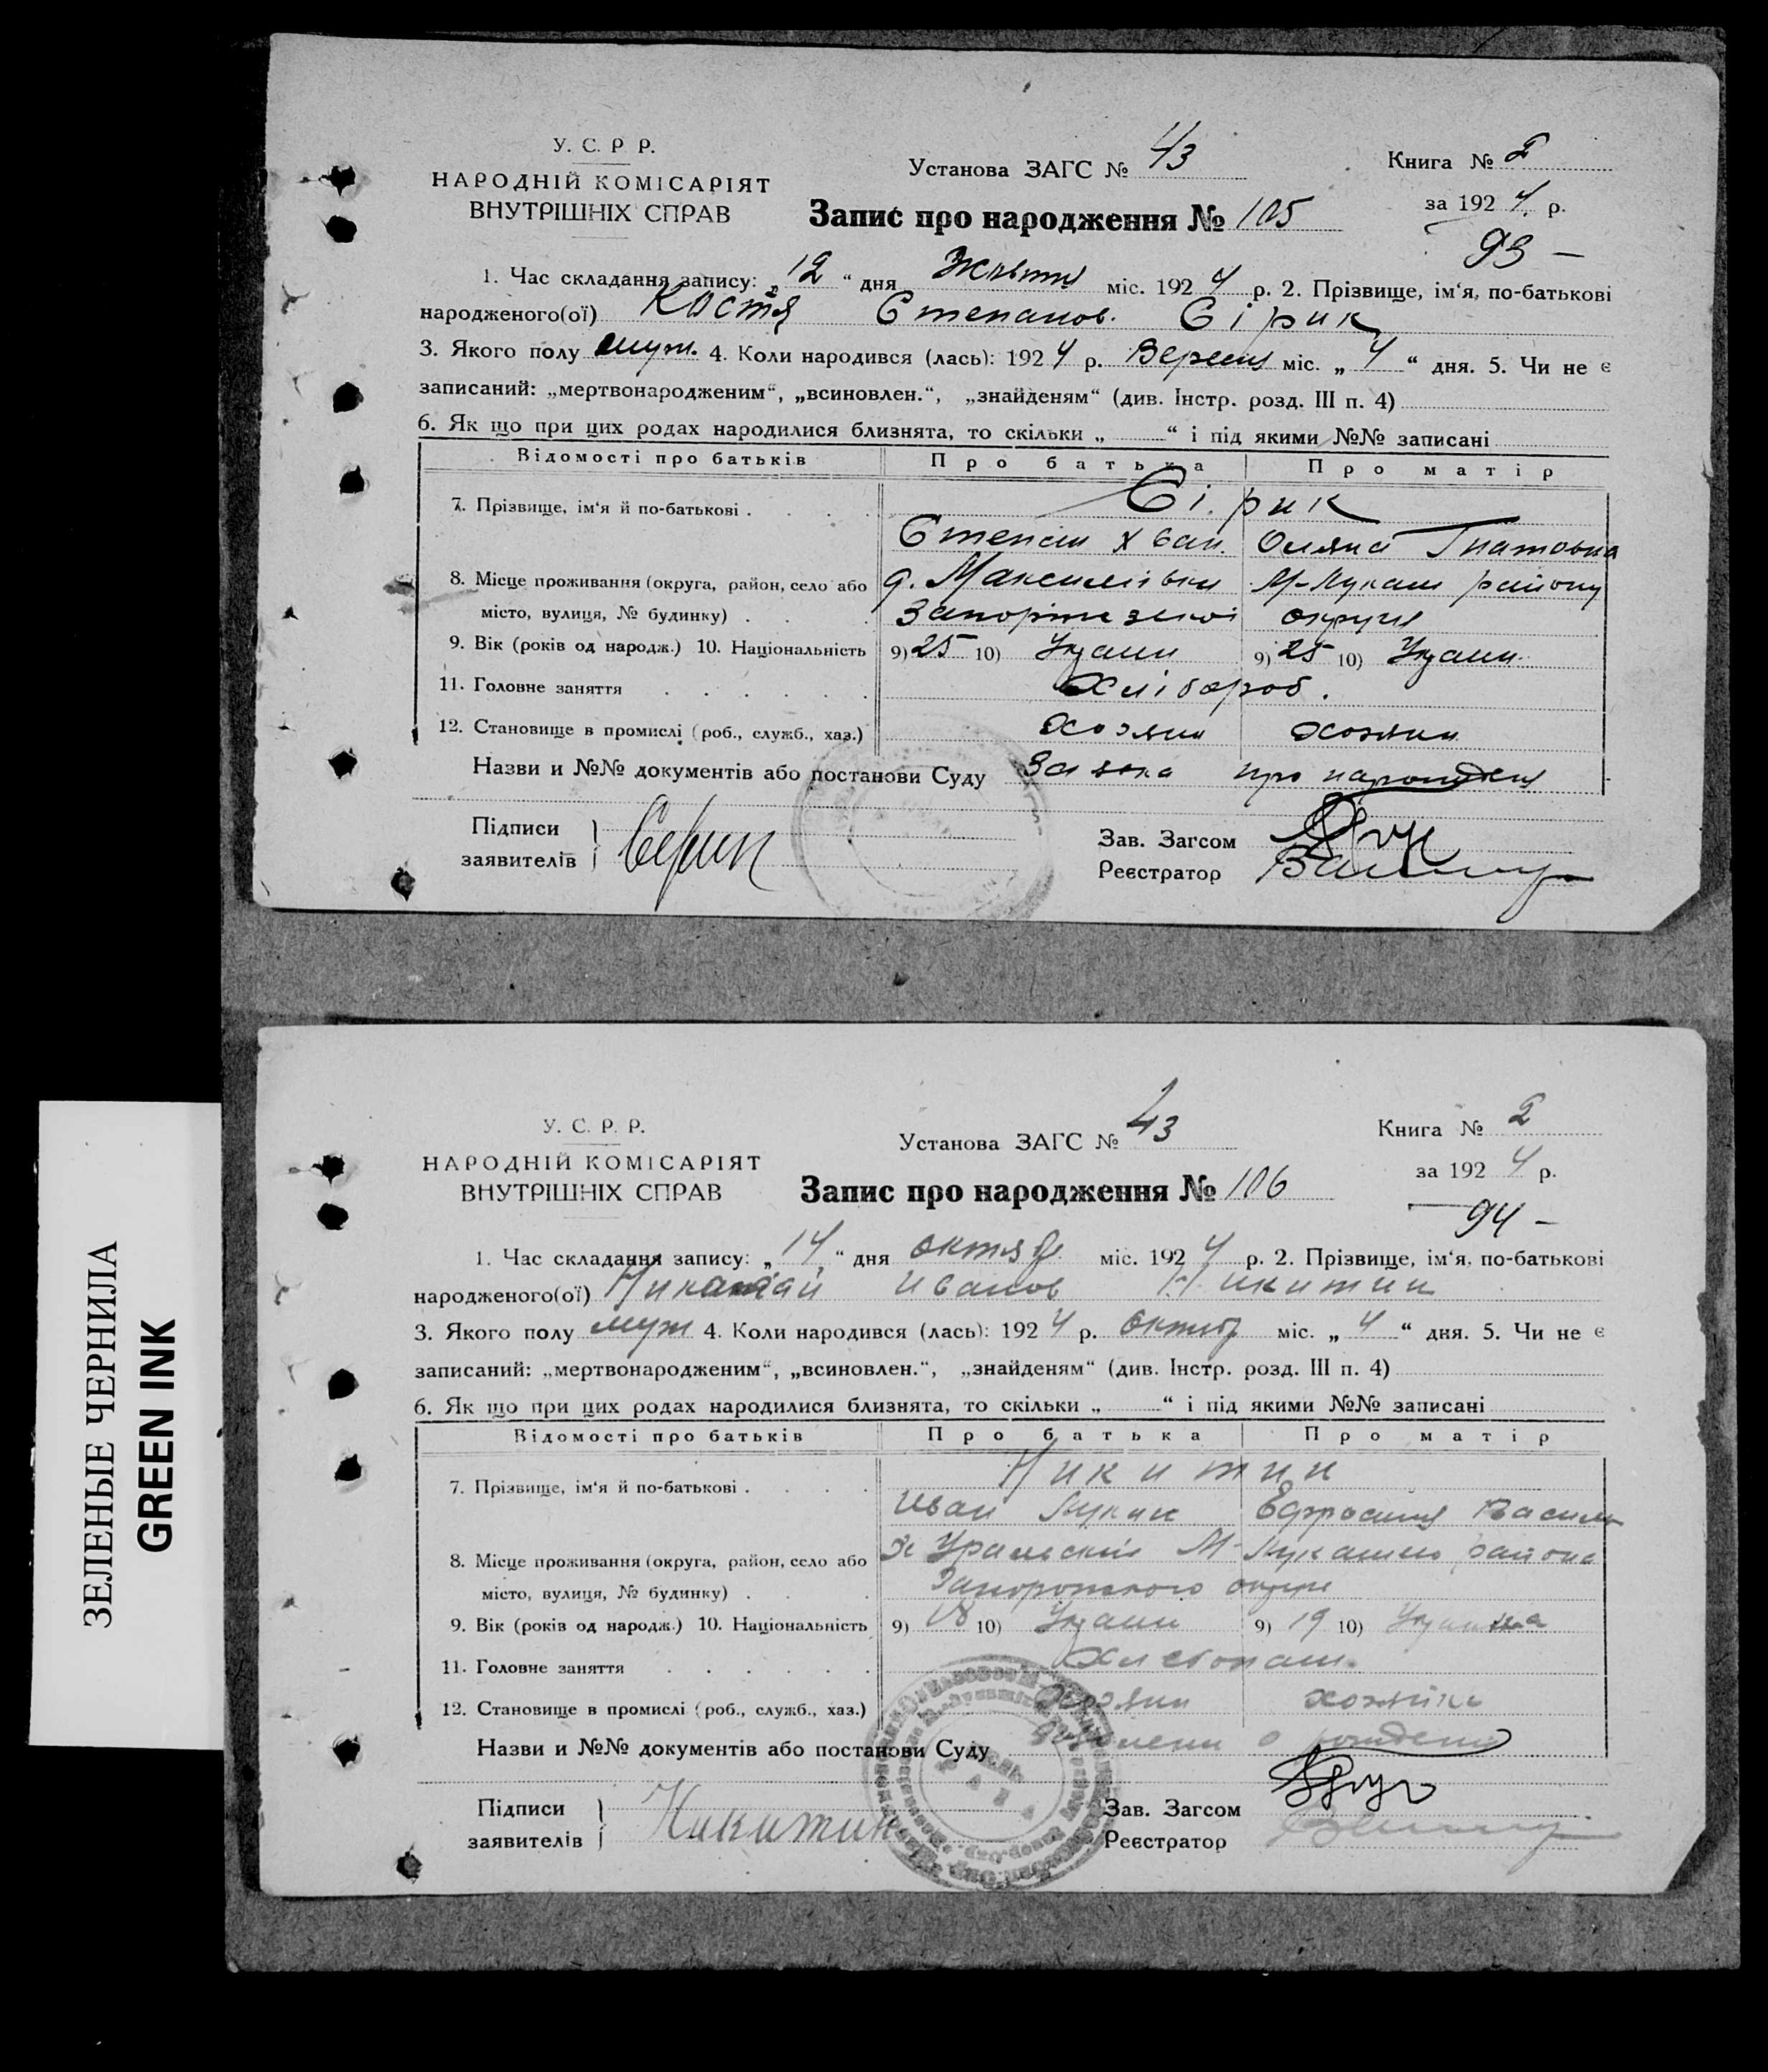 У. С. Р Р.
НАРОДНІЙ КОМІСАРІЯТ
ВНУТРІШНІХ СПРАВ
Установа ЗАГС № 43
Книга № 2
за 1924 р.
Запис про народження № 105
93 —
1. Час складання запису: „12“ дня Жовтня міс. 1924 р. 2. Прізвище, ім‘я, по-батькові
народженого(ої) Костя Степанов. Сірик
3. Якого полу муж. 4. Коли народився (лась): 1924 р. Вересня міс. „4“ дня. 5. Чи не є
записаний: „мертвонародженим“, „всиновлен.“, „знайденям“ (див. Інстр. розд. III п. 4)
6. Як що при цих родах народилися близнята, то скільки „ “ і під якими №№ записані
Відомості про батьків Про батька Про матір
7. Прізвище, ім‘я й по-батькові . . . . Сірик
Степан Оляна Гнатовна
8. Місце проживання (округа, район, село або д. Максимівки М-Лукаш району
місто, вулиця, № будинку) . . . Запоріжської округи
9. Вік (років од народж.) 10. Національність 9) 25 10) Украин 9) 25 10) Украин.
11. Головне заняття . . . . . . Хлібороб.
12. Становище в промислі (роб., служб., хаз.) Хозяин хозяин
Назви и №№ документів або постанови Суду Заявка про народженя
Підписи
заявителів
Зав. Загсом
Реєстратор
У. С. Р. Р.
НАРОДНІЙ КОМІСАРІЯТ
ВНУТРІШНІХ СПРАВ
Установа ЗАГС № 43
Книга № 2
за 1924 р.
Запис про народження № 106
94 —
1. Час складання запису: „14“ дня октяб міс. 1924 р. 2. Прізвище, ім‘я, по-батькові
народженого(ої) Иванов Никитин
3. Якого полу муж 4. Коли народився (лась): 1924 р. октябр міс. „4“ дня. 5. Чи не є
записаний: „мертвонародженим“, „всиновлен.“, „знайденям“ (див. Інстр. розд. III п. 4)
6. Як що при цих родах народилися близнята, то скільки „ “ і під якими №№ записані
Відомості про батьків Про батька Про матір
7. Прізвище, ім‘я й по-батькові . . . . Никитин
Иван Лукич Ефросиния Васил
8. Місце проживання (округа, район, село або х Уральский М-Лукашево района
місто, вулиця, № будинку) . . . Запорожского округи
9. Вік (років од народж.) 10. Національність 9) 18 10) Украин 9) 19 10) Украинка
11. Головне заняття . . . . . . Хлебопаш.
12. Становище в промислі (роб., служб., хаз.) хозяин хозяйка
Назви и №№ документів або постанови Суду о рождении
Підписи
заявителів Никитин
Зав. Загсом
Реєстратор
ЗЕЛЕНЫЕ ЧЕРНИЛА
GREEN INK